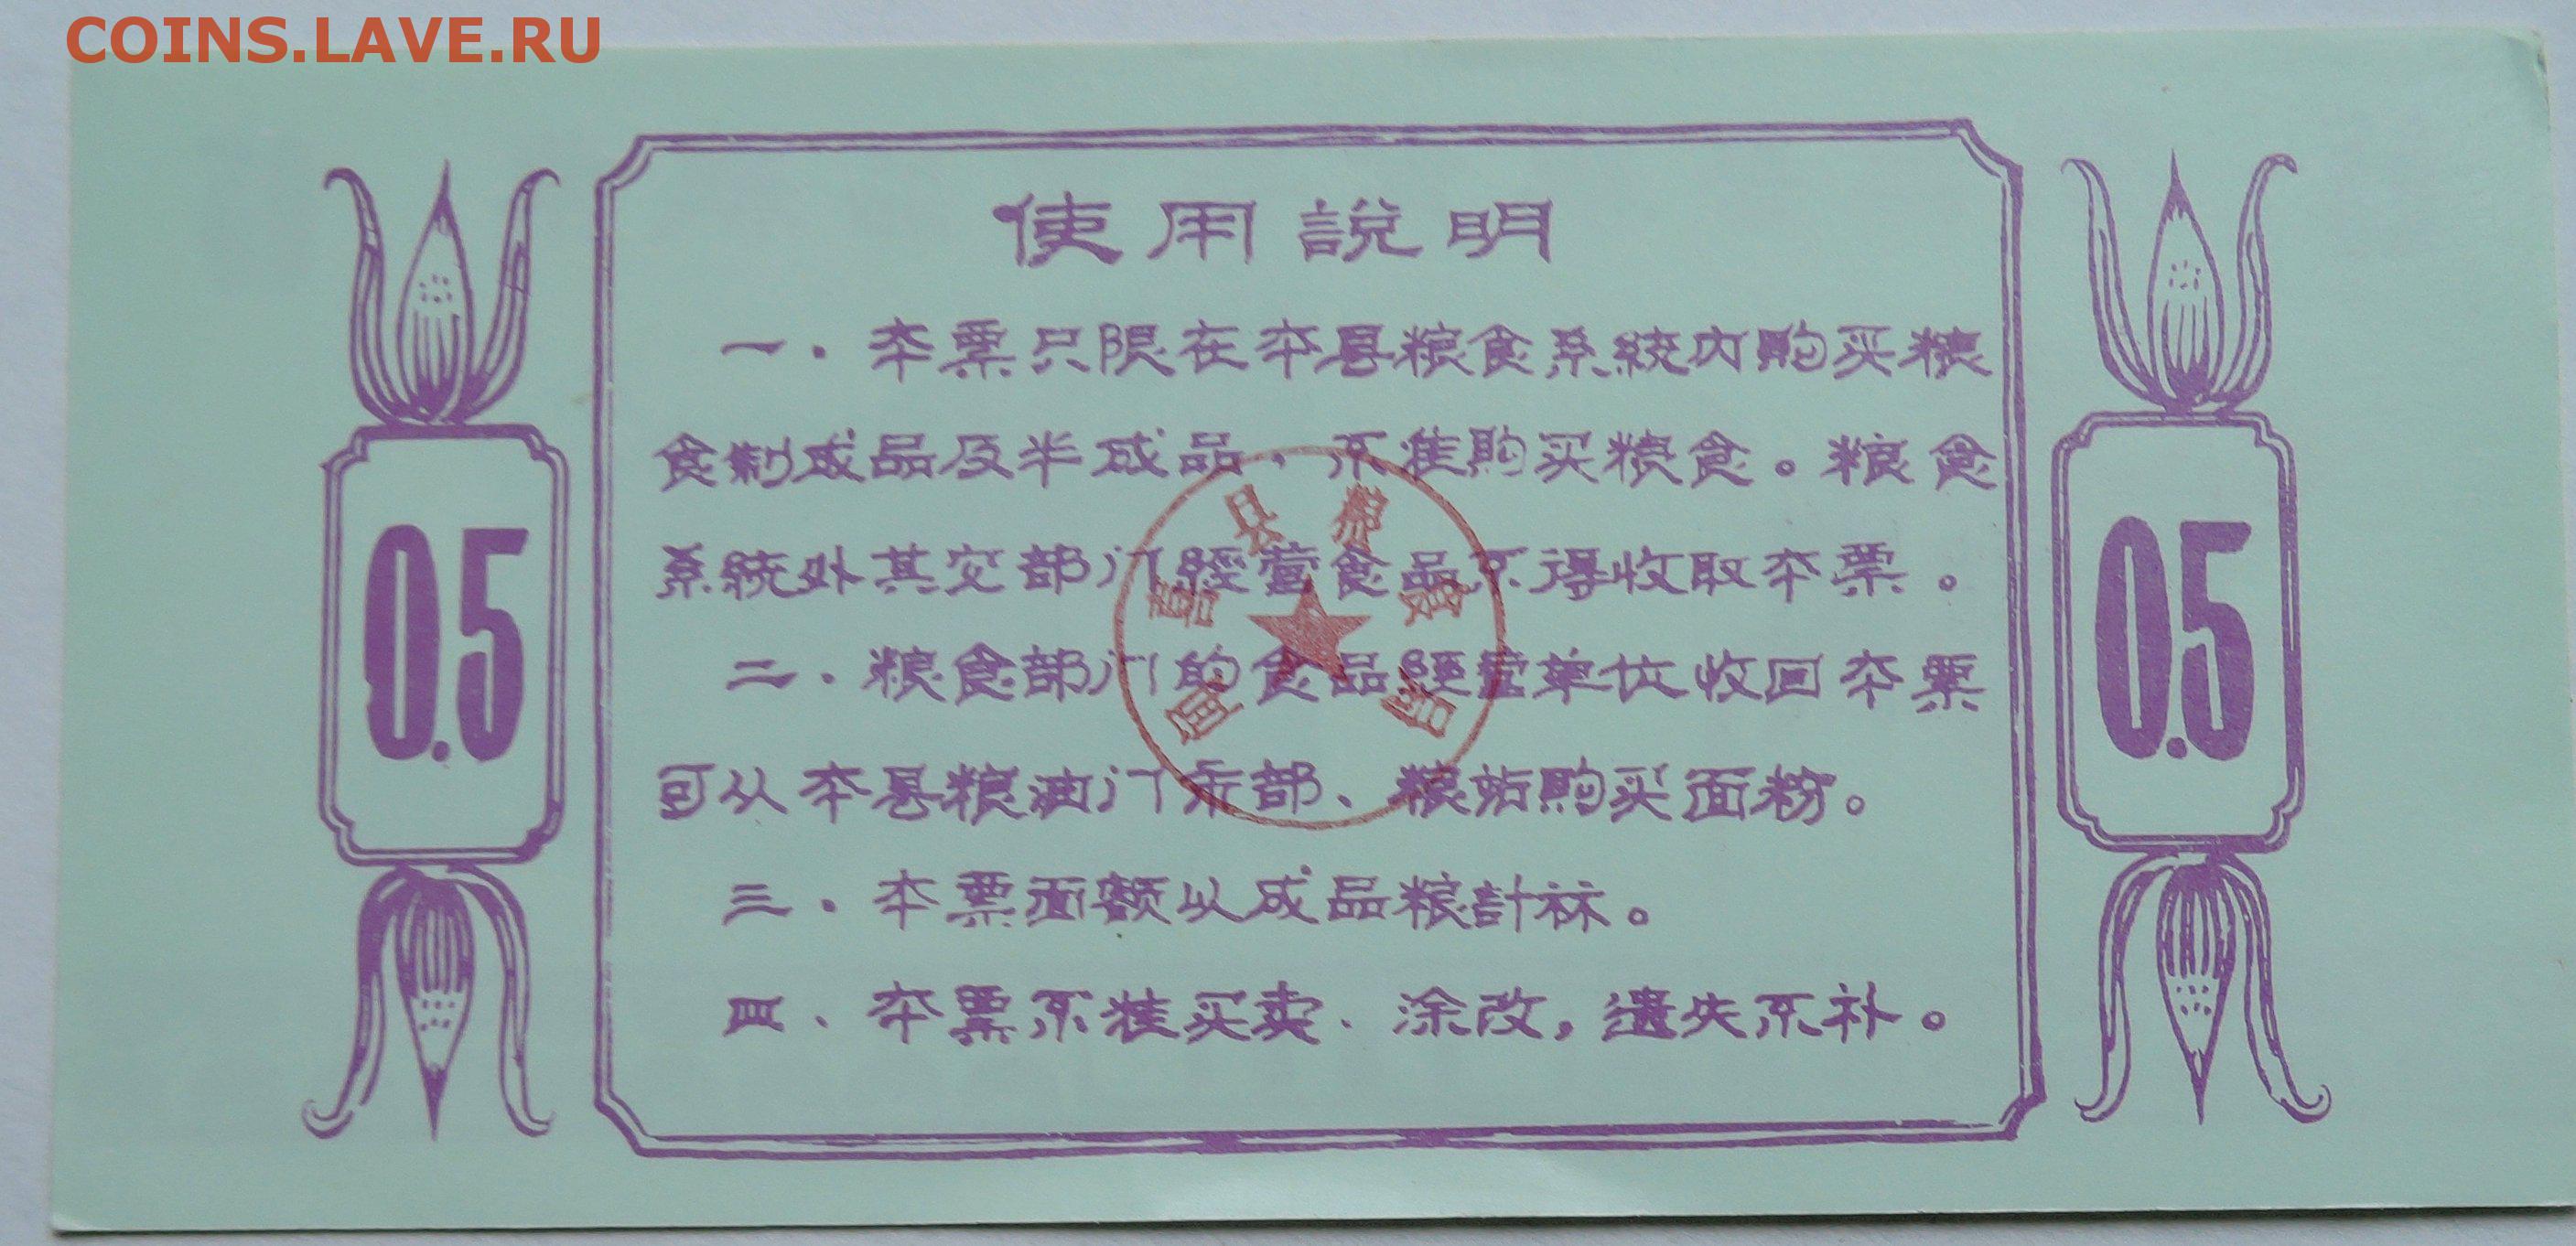 COINS.LAVE.RU
使用說明
一．本票只限在本县粮食系統内购买粮
食制成品及半成品，不准购买粮食。粮食
系統外其它部门經营食品不得收取本票。
二．粮食部门的食品經营单位收回本票
可从本县粮油门市部、粮站购买面粉。
三．本票面额以成品粮計祘。
四．本票不准买卖．涂改，遗失不补。
0.5
0.5
县粮